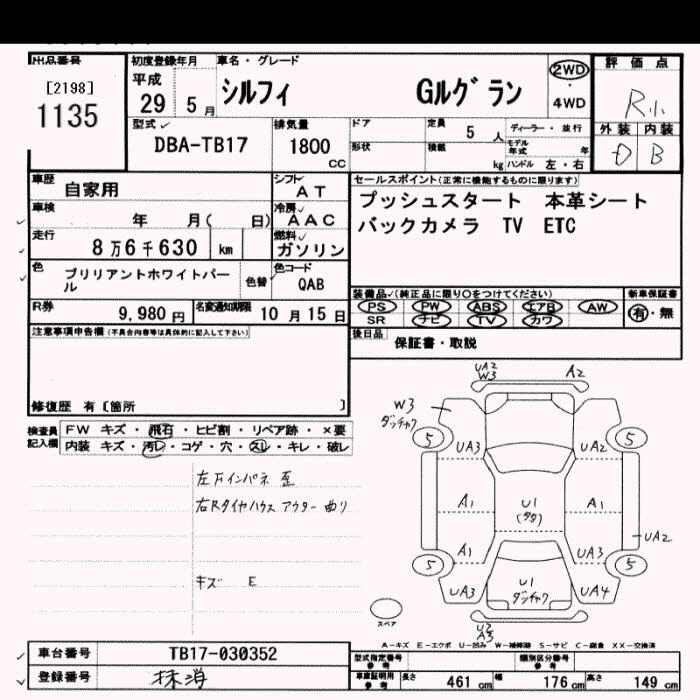 出品番号 初度登録年月 車名・グレード 評価点
[2198] 平成 シルフィ Gルグラン 2WD
1135 29 5月 ・ 4WD R小
型式 排気量 ドア 定員 5人 ディーラー・並行 外装 内装
DBA-TB17 1800cc 形状 積載 kg モデル年式 年 ハンドル 左・右 B
車歴 自家用 シフト AT セールスポイント(正常に機能するものに限ります)
車検 年 月( 日) 冷房 AAC プッシュスタート 本革シート
走行 8万6千630 km 燃料 ガソリン バックカメラ TV ETC
色 ブリリアントホワイトパール 色替 色コード QAB
装備品(純正品に限り○をつけてください) 新車保証書
PS PW ABS エアB AW 有・無
R券 9,980円 名変通知期限 10月15日 SR ナビ TV カワ
注意事項申告欄(不具合内容等は具体的に記入して下さい) 後日品 保証書・取説
修復歴 有 [箇所 ]
検査員記入欄 FW キズ・飛石・ヒビ割・リペア跡・×要
内装 キズ・汚レ・コゲ・穴・スレ・キレ・破レ
左Fインパネ 歪
右Rタイヤハウス アウター 曲り
キズ E
UA2
W3 A2
W3
ダッチャク
5 5
UA3 UA2
A1 U1 A1
(タタ)
UA2
A1 UA3
5 5
UA3 U1 UA4
ダッチャク
スペア
U2
A3
A-キズ E-エクボ U-凹み W-補修跡 S-サビ C-腐食 XX-交換済
車台番号 TB17-030352 型式指定番号 参考 類別区分番号 参考
登録番号 抹消 車庫証明用 参考 長さ 461cm 幅 176cm 高さ 149cm